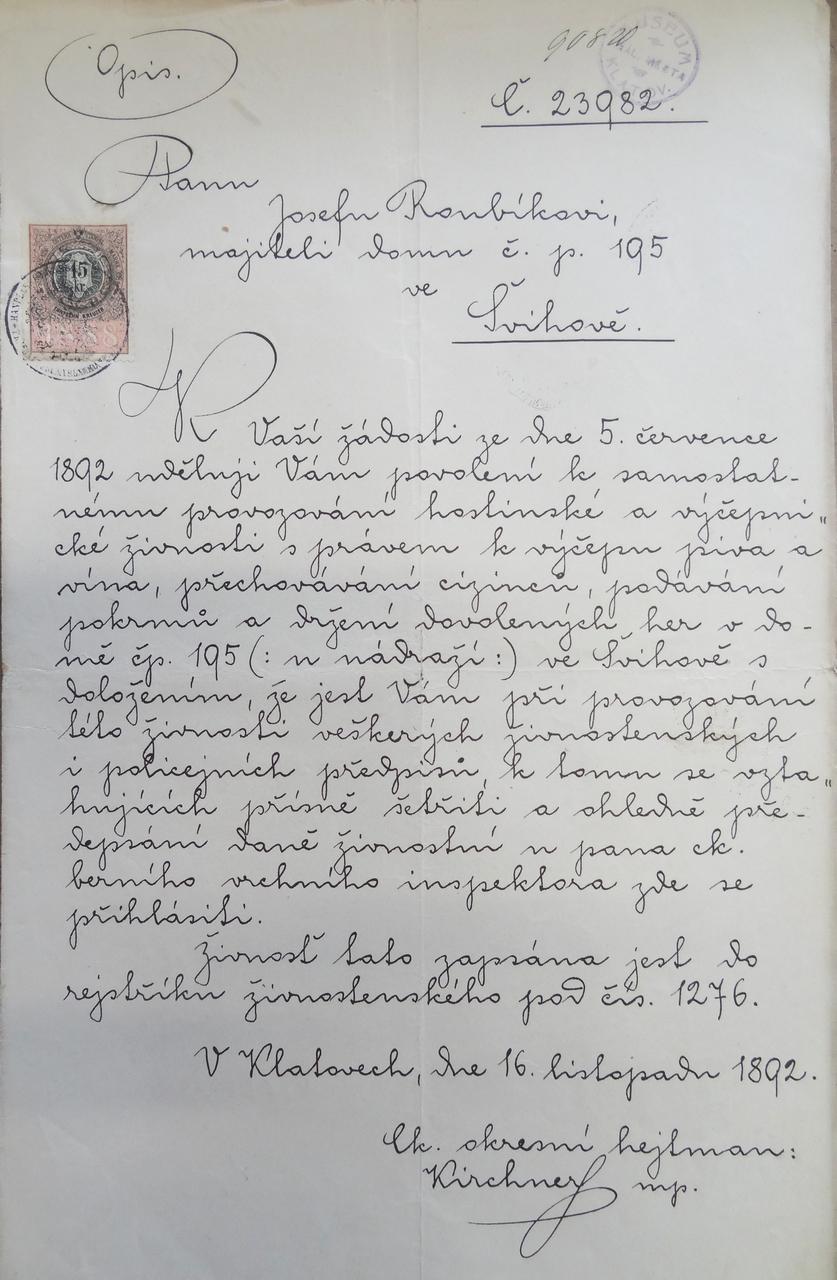 Opis.
90820
MUSEUM
KLATOV.
Č. 23982.
Panu
Josefu Roubíkovi,
majiteli domu č. p. 195
ve
Švihově.
15
kr.
K Vaší žádosti ze dne 5. července
1892 uděluji Vám povolení k samostat-
nému provozování hostinské a výčepni„
cké živnosti s právem k výčepu piva a
vína, přechovávání cizinců, podávání
pokrmů a držení dovolených her v do-
mě čp. 195 (: u nádraží :) ve Švihově s
doložením, že jest Vám při provozování
této živnosti veškerých živnostenských
i policejních předpisů, k tomu se vzta„
hujících přísně šetřiti a ohledně pře-
depsání daně živnostní u pana ck.
berního vrchního inspektora zde se
přihlásiti.
Živnosť tato zapsána jest do
rejstříku živnostenského pod čís. 1276.
V Klatovech, dne 16. listopadu 1892.
Ck. okresní hejtman:
Kirchner mp.